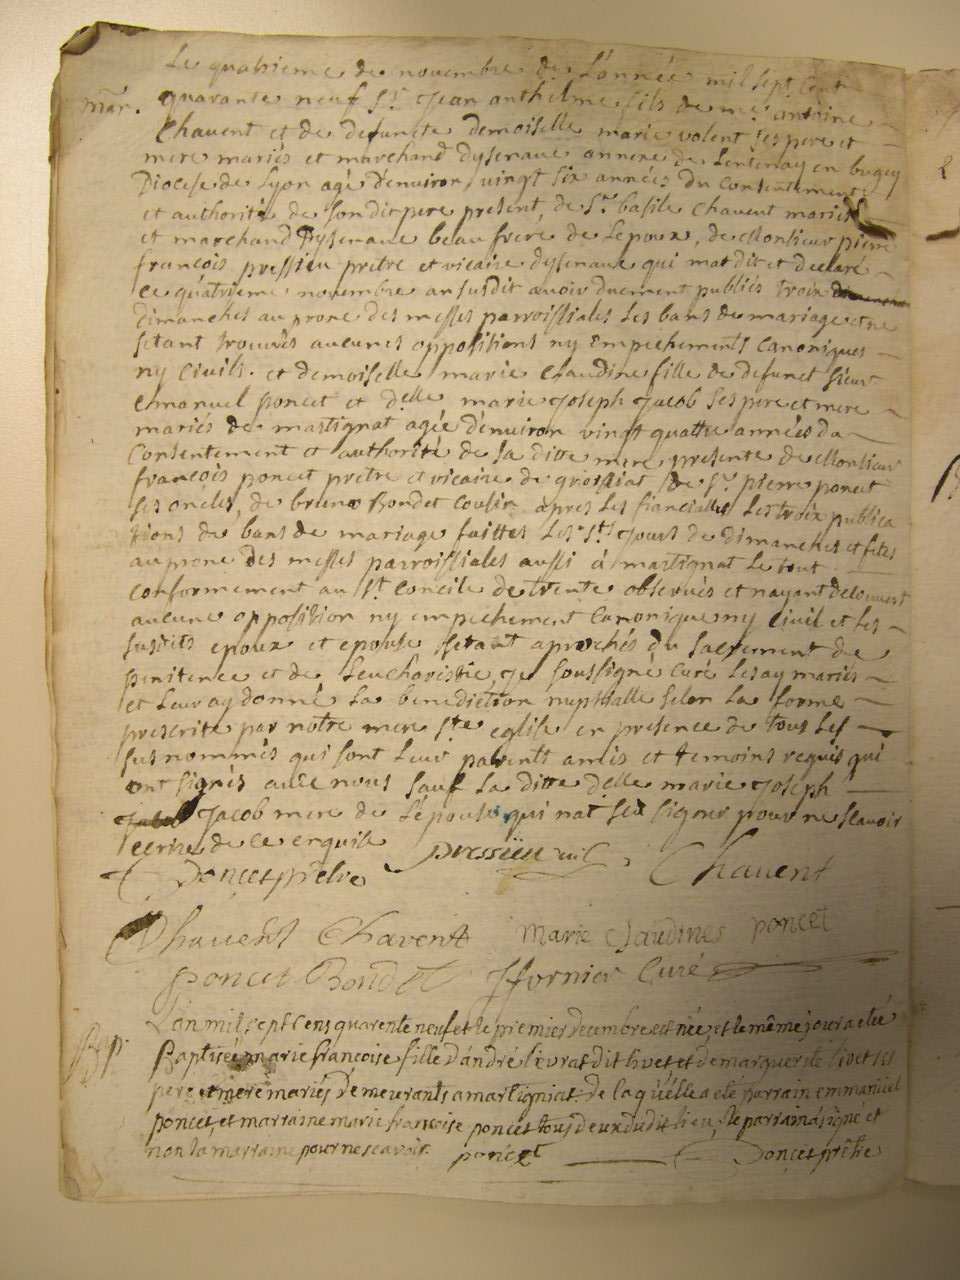 Le quatrieme de novembre de L'année mil sept Cent
mar. quarante neuf Sr. Jean anthelme fils de me. antoine
Chavent et de defuncte demoiselle marie volent ses pere et
mere mariés et marchand dysenave annexe de Lentenay en bugey
Diocese de Lyon agé d'environ vingt six années du Consentement
et authorité de son dit pere present, de Sr. basile Chavent mariés
et marchand Dysenave beau frere de Lepoux, de Monsieur pierre
françois pressieu prêtre et vicaire dysenave qui mat dit et declaré
ce quatrieme novembre an susdit avoir duement publiés trois
dimanches au prone des messes parroissiales Les bans de mariage et ne
setant trouvés aucunes oppositions ny Empechements Canoniques
ny Civils. et demoiselle marie Claudine fille de defunct sieur
Emanuel poncet et delle marie Joseph Jacob ses pere et mere
mariés de martignat agée d'environ vingt quattre années du
Consentement et authorité de sa ditte mere presente de Monsieur
françois poncet prêtre et vicaire de groissiat de Sr. pierre poncet
ses oncles, de bruno Bondet Cousin apres Les fiancialles Les trois publica
tions de bans de mariage faittes Les Sts Jours de dimanches et fetes
au prone des messes parroissiales aussi à martignat Le tout
conformement au St. Concile de trente observés et nayant decouvert
aucune opposition ny empechement Canonique ny Civil et Les
susdits epoux et epouse setant aprochés du sacrement de
penitence et de Leucharistie, Je soussigné Curé Les ay mariés
et Leur ay donné La benediction nuptialle selon La forme
prescrite par notre mere Ste eglise en presence de tous Les
susnommés qui sont Leur parents amis et temoins requis qui
ont signés avec nous sauf La ditte delle marie Joseph
Jacob mere de L'épouse qui nat seu signer pour ne scavoir
ecrire de ce enquise pressieu vic. Chavent
Poncet prêtre
Chavent Chavent Marie Claudines poncet
poncet Bondet Jfornier Curé
Bap. L'an mil sept cens quarente neuf et le premier decembre est née, et le même jour a eté
Baptisée marie françoise fille d'andré levrat dit livet et de marguerite livet ses
pere et mere mariés demeurants a martigniat de laquelle a eté parrain emmanuel
poncet, et marraine marie françoise poncet tous deux du dit lieu, le parrain a signé et
non la marraine pour ne scavoir. poncet Poncet prêtre